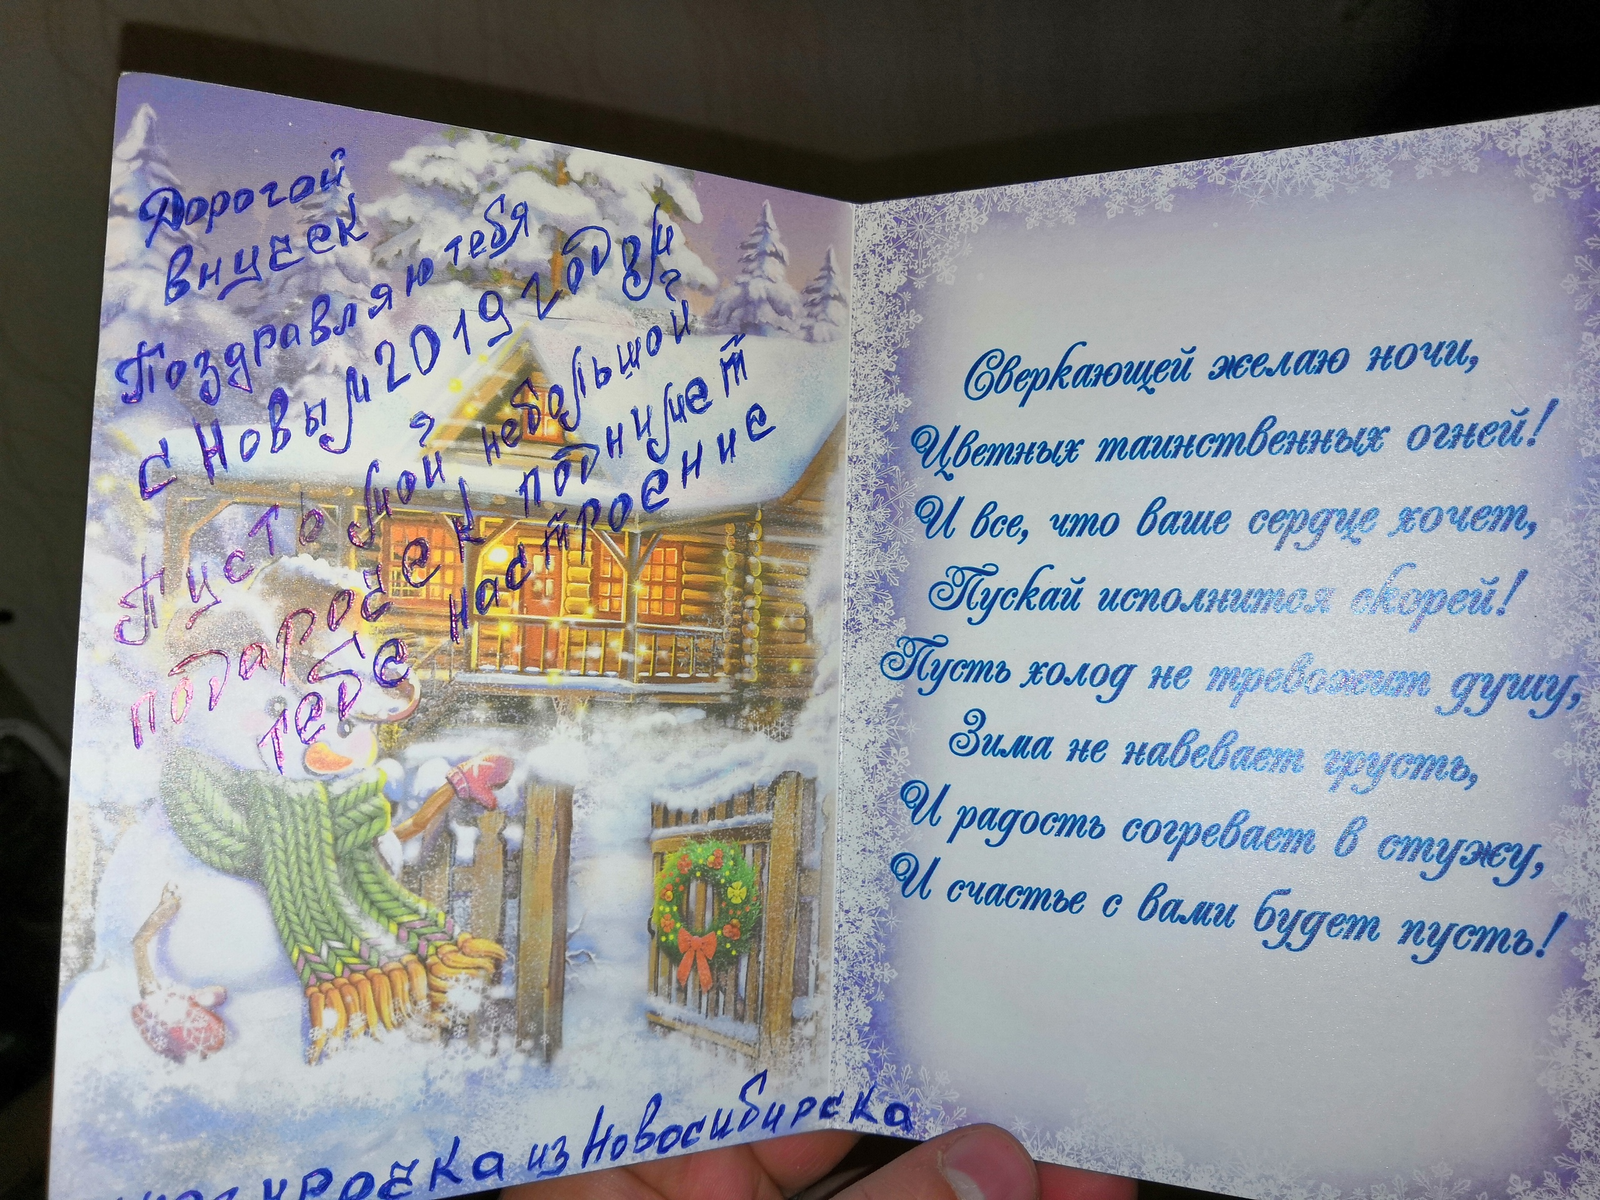 Дорогой
внучек
Поздравляю тебя
с Новым 2019 годом
Пусть мой небольшой
подарочек поднимет
тебе настроение
из Новосибирска
Сверкающей желаю ночи,
Цветных таинственных огней!
И все, что ваше сердце хочет,
Пускай исполнится скорей!
Пусть холод не тревожит душу,
Зима не навевает грусть,
И радость согревает в стужу,
И счастье с вами будет пусть!